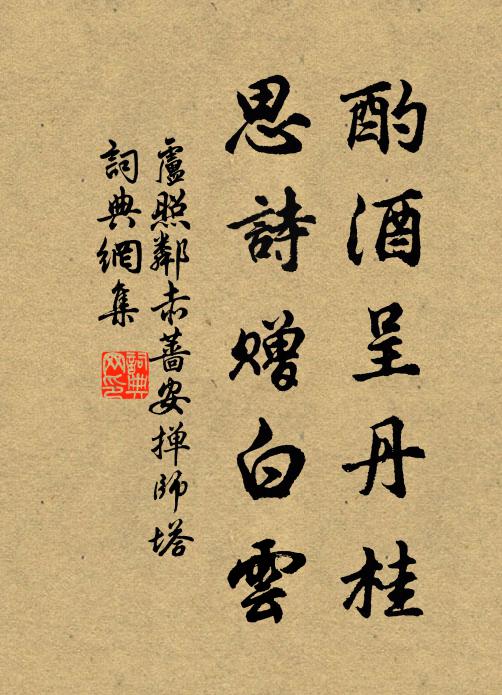 酌酒呈丹桂
思詩贈白雲
盧照鄰赤薔安撣師塔
詞典網集
詞典网印